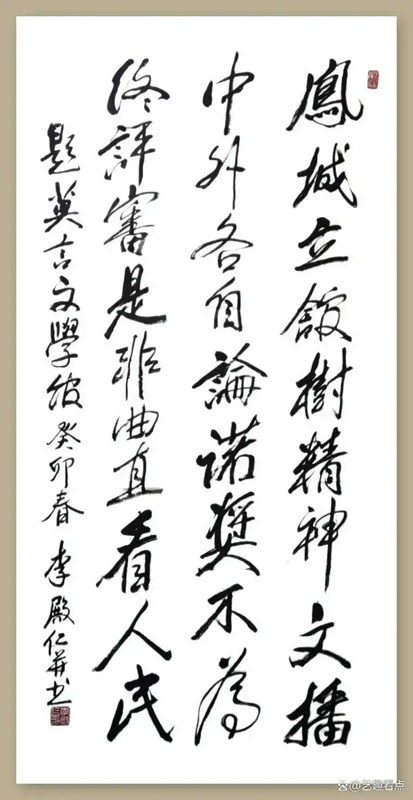 鳳城立館樹精神文播
中外各自論諾獎不為
終評審是非曲直看人民
題莫言文學館癸卯春李殿仁并书
@艺趣看点